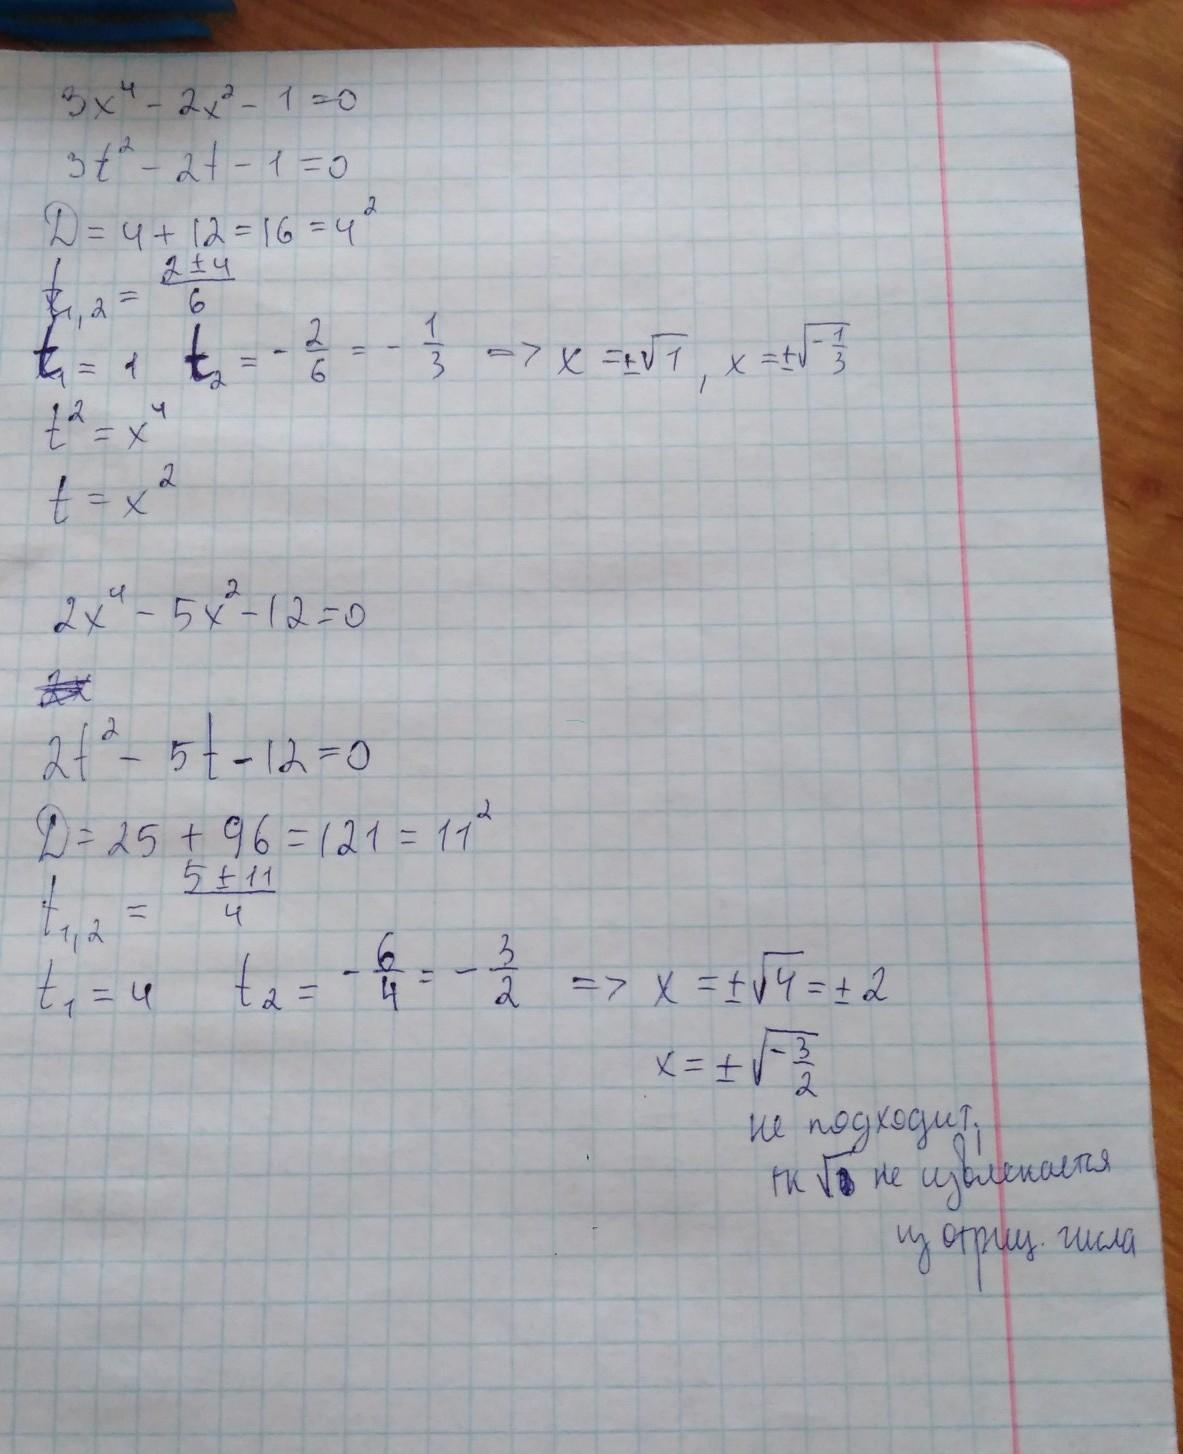 3x⁴ - 2x² - 1 = 0
3t² - 2t - 1 = 0
D = 4 + 12 = 16 = 4²
t₁,₂ = (2 ± 4)/6
t₁ = 1 t₂ = -2/6 = -1/3 => x = ±√1, x = ±√(-1/3)
t² = x⁴
t = x²
2x⁴ - 5x² - 12 = 0
2t² - 5t - 12 = 0
D = 25 + 96 = 121 = 11²
t₁,₂ = (5 ± 11)/4
t₁ = 4 t₂ = -6/4 = -3/2 => x = ±√4 = ±2
x = ±√(-3/2)
не подходит,
тк √ не извлекается
из отриц. числа